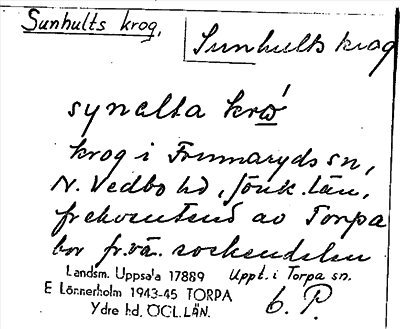 Sunhults krog,
Sunhults krog
synelta krώ̲
krog i Frinnaryds sn,
N. Vedbo hd, Jönk. län,
frekventend av Torpa
bor fr. vä. sockendelen
Landsm. Uppsala 17889 Uppt. i Torpa sn.
E Lönnerholm 1943-45 TORPA
Ydre hd. ÖCL. LÄN.
b. P.